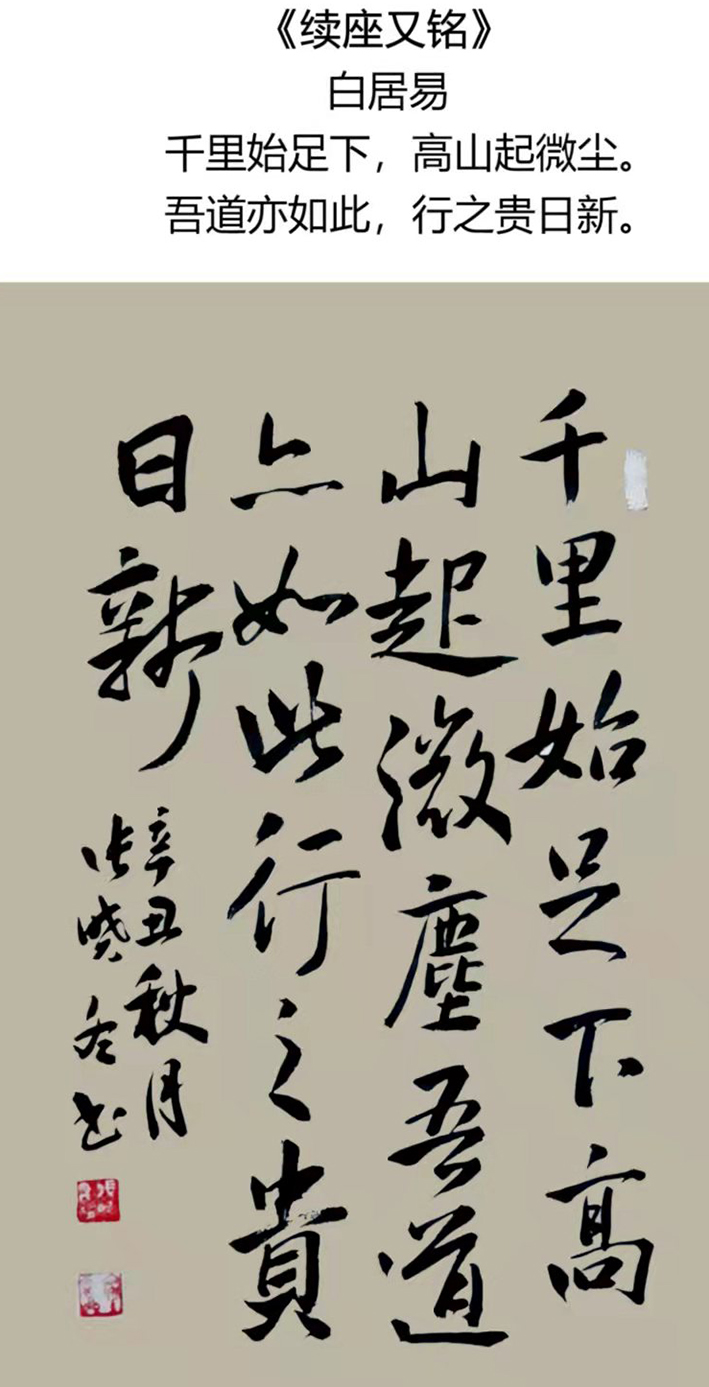 《续座又铭》
白居易
千里始足下，高山起微尘。
吾道亦如此，行之贵日新。
千里始足下高
山起微塵吾道
亦如此行之貴
日新
辛丑秋月
张晓冬书